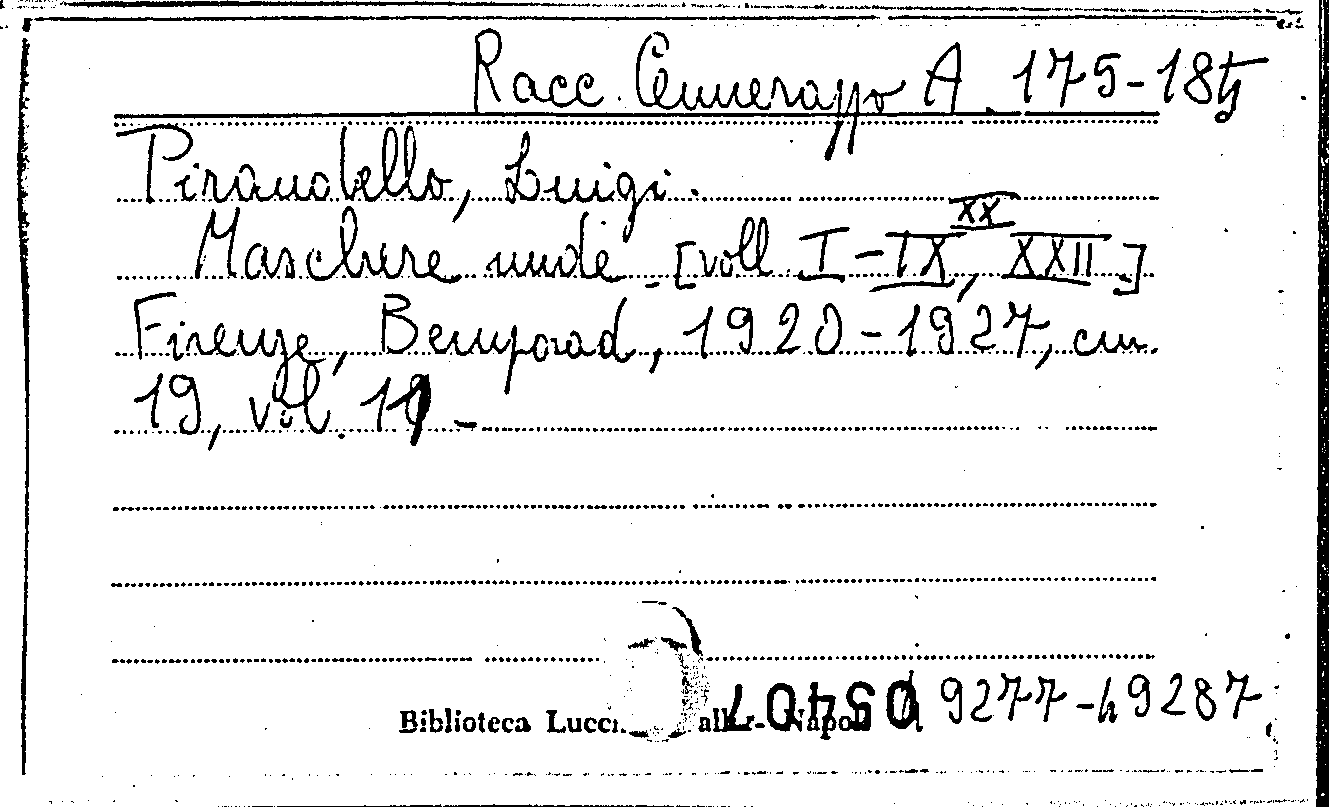 Racc. Cennerazzo A. 175-185
Pirandello, Luigi.
Maschere nude. [voll. I-IX, XX, XXII]
Firenze, Bemporad, 1920-1927, cm.
19, vol. 11 -
Biblioteca Lucchesi Palli - Napoli
49277-49287